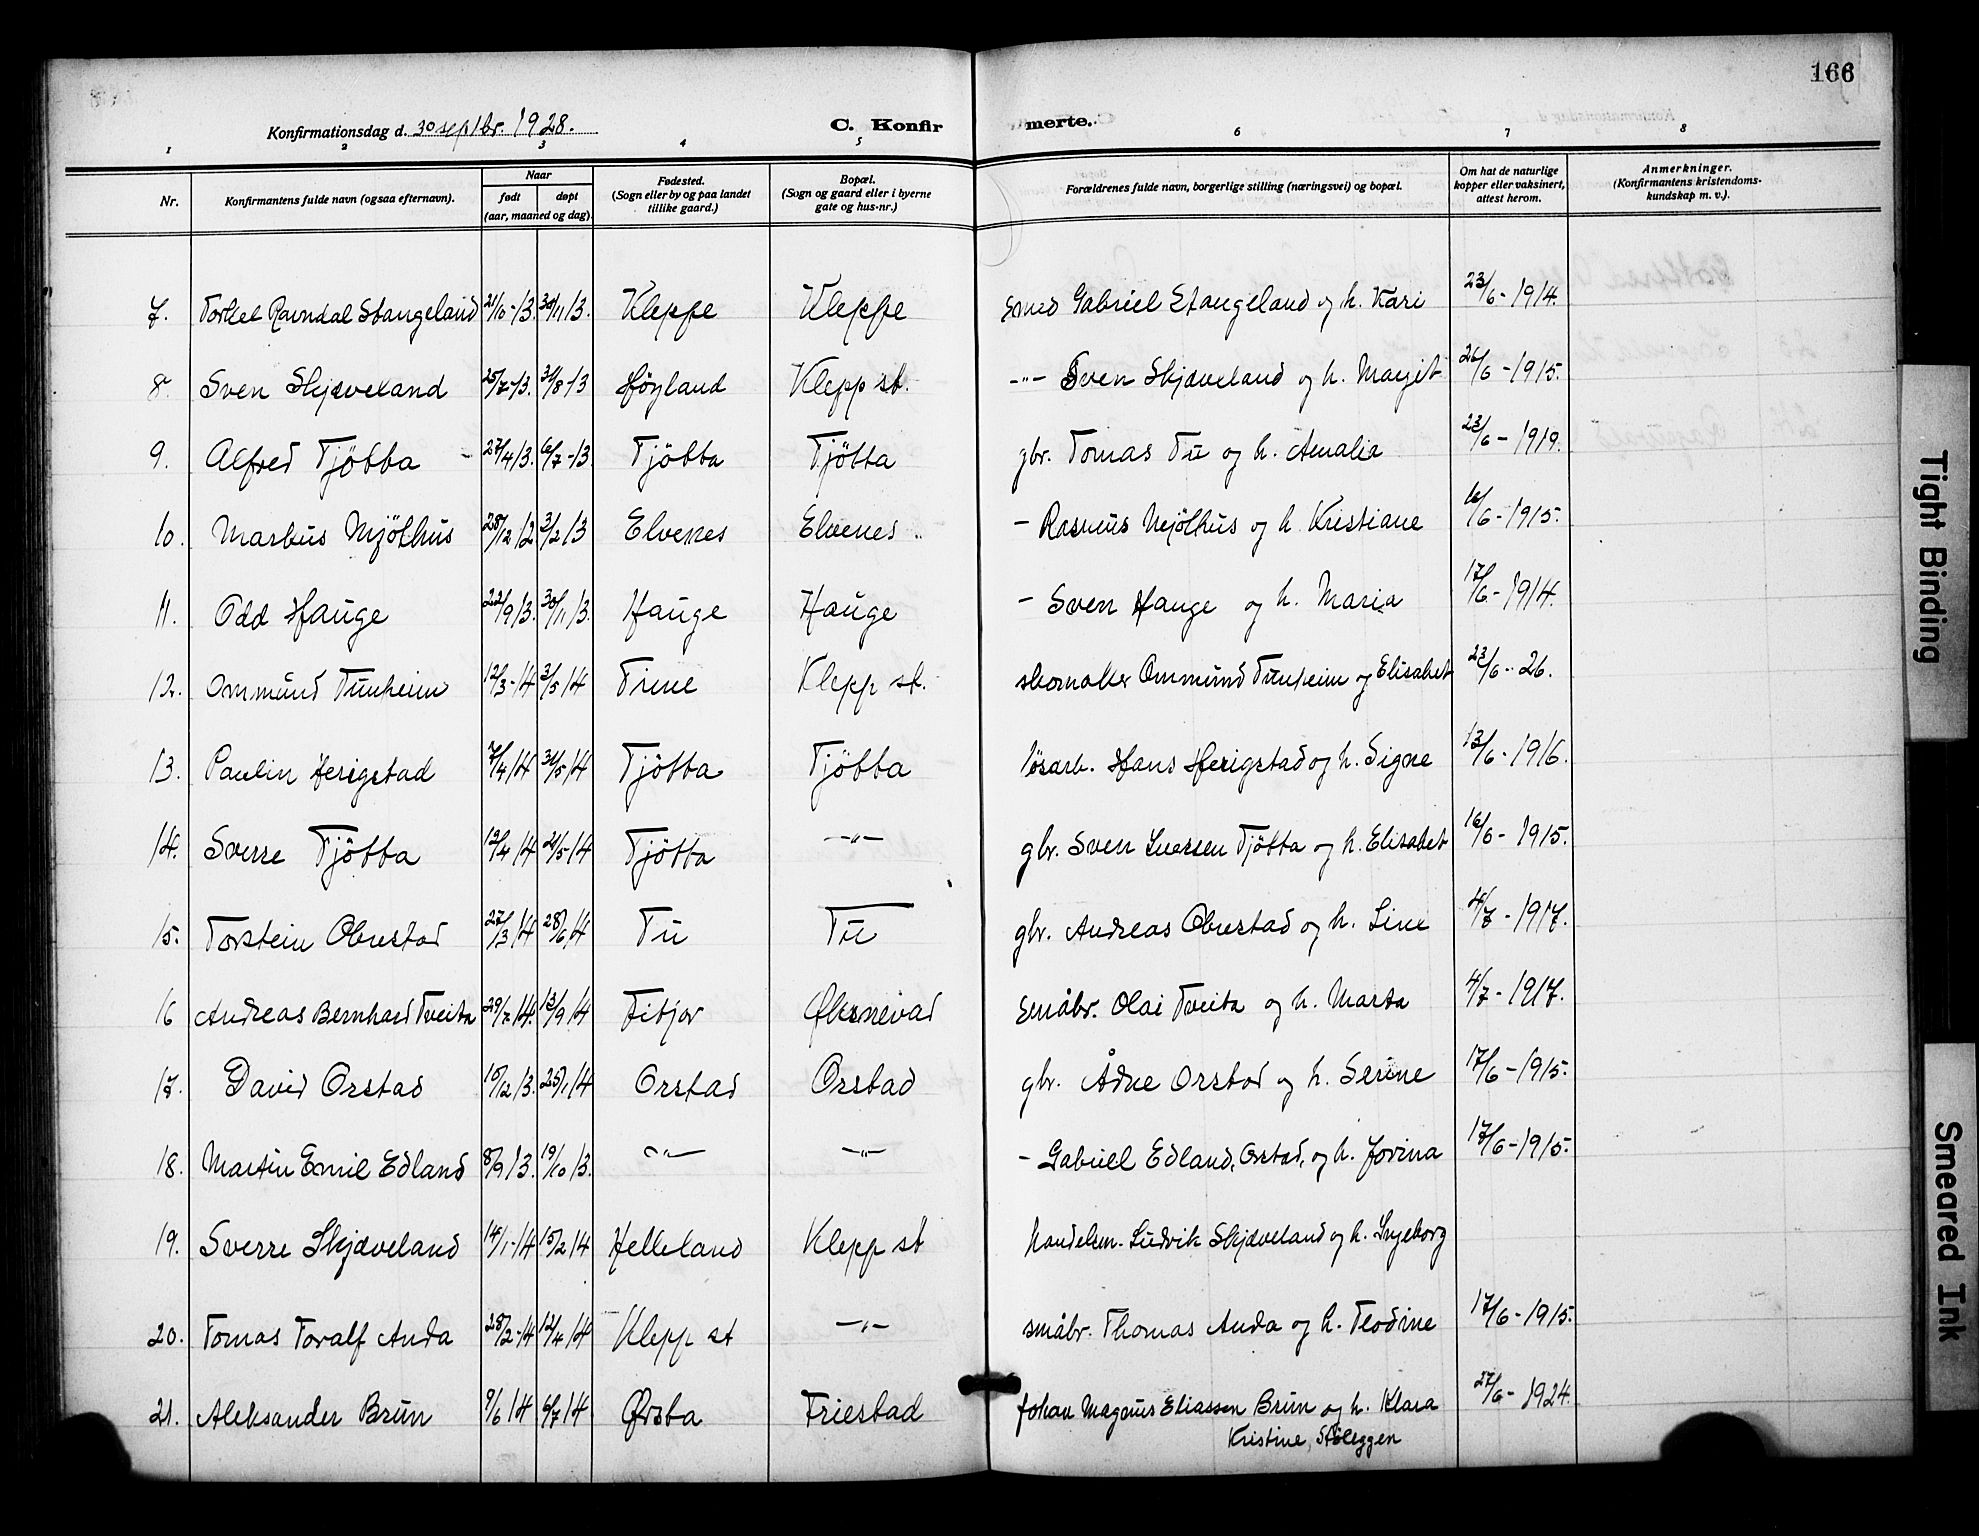 166
Konfirmationsdag d. 30 septbr. 1928.
C. Konfirmerte.
1 2 3 4 5 6 7 8
Nr. Konfirmantens fulde navn (ogsaa efternavn). Naar født døpt (aar, maaned og dag). Fødested. (Sogn eller by og paa landet tillike gaard.) Bopæl. (Sogn og gaard eller i byerne gate og hus-nr.) Forældrenes fulde navn, borgerlige stilling (næringsvei) og bopæl. Om hat de naturlige kopper eller vaksinert, attest herom. Anmerkninger. (Konfirmantens kristendomskundskap m. v.).
7. Torkel Ravndal Stangeland 21/10-13. 30/11 13. Kleppe Kleppe Smed Gabriel Stangeland og h. Kari 23/6-1914.
8. Sven Skjæveland 25/7-13. 31/8 13 Høyland Klepp st. -"- Sven Skjæveland og h. Margit 26/6-1915.
9. Alfred Tjötta 27/4 13. 6/7-13. Tjötta Tjötta gbr. Tomas Tu og h. Amalia 23/6-1919.
10. Markus Mjölhus 28/12 12 3/2 13 Elvenes Elvenes - Rasmus Mjölhus og h. Kristiane 16/6-1915.
11. Odd Hauge 22/9 13. 30/11 13. Hauge Hauge - Sven Hauge og h. Maria 17/6-1914.
12. Ommund Tunheim 12/3-14 3/5 14 Time Klepp st. skomaker Ommund Tunheim og Elisabet 23/6-26.
13. Paulin Herigstad 7/4 14 31/5 14 Tjötta Tjötta lösarb. Hans Herigstad og h. Signe 13/6-1916.
14. Sverre Tjötta 12/4 14 21/5 14 Tjötta -"- gbr. Sven Ivarsen Tjötta og h. Elisabet 16/6-1915.
15. Torstein Obrestad 27/3 14 28/6 14 Tu Tu gbr. Andreas Obrestad og h. Line 4/7-1917.
16 Andreas Bernhard Tveita 29/7 14. 13/9 14 Fitjar Øksnevad Småbr. Olai Tveita og h. Marta 4/7-1917.
17. David Orstad 15/12 13. 25/1 14 Orstad Orstad gbr. Ådne Orstad og h. Serine 17/6-1915.
18. Martin Emil Edland 8/9 13. 19/10 13. -"- -"- - Gabriel Edland, Orstad, og h. Jorina 17/6-1915.
19. Sverre Skjæveland 14/1-14 15/2 14 Helleland Klepp st handelsm. Ludvik Skjæveland og h. Ingeborg
20. Tomas Toralf Anda 28/2-14 12/4 14 Klepp st -"- småbr. Thomas Anda og h. Teodine 17/6-1915.
21. Aleksander Brun 9/6 14 6/7 14 Ørsta Friestad Johan Magnus Eliassen Brun og h. Klara 27/6-1924.
Kristine Støleggen
Tight Binding
Smeared Ink